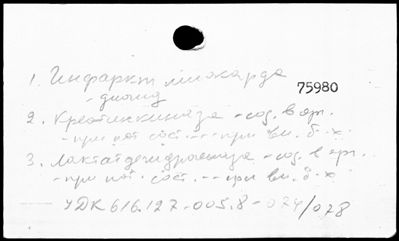 1. Инфаркт миокарда
75980
- диагн
2. Креатинкиназа - сод. в орг.
- при пат. сост. -- при вн. б-х
3. Лактатдегидрогеназа - сод. в орг.
- при пат. сост. -- при вн. б-х
УДК 616.127-005.8-074/078